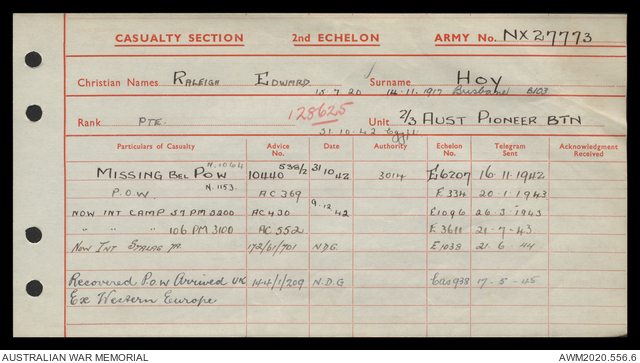 CASUALTY SECTION 2nd ECHELON ARMY No. NX27773
Christian Names RALEIGH EDWARD Surname HOY
15.7.20 14.11.1917 Brisbane B103
128625
Rank PTE Unit 2/3 AUST PIONEER BTN
31.10.42 Egypt
Particulars of Casualty Advice No. Date Authority Echelon No. Telegram Sent Acknowledgment Received
N.1064 538/2
MISSING BEL POW 10440 31 10 42 3014 E6207 16.11.1942
P.O.W. N.1153. AC 369 E334 20-1-1943
9.12.42
NOW INT CAMP 57 PM 3200 AC 430 E1096 26.3.1943
" " " 106 PM 3100 AC 552 E.3611 21-7-43
NOW INT STALAG 7A 172/61/701 N.D.G. E1038 21.6.44
Recovered P.O.W Arrived UK 144/1/209 N.D.G Cas938 17-5-45
Ex Western Europe
AUSTRALIAN WAR MEMORIAL AWM2020.556.6